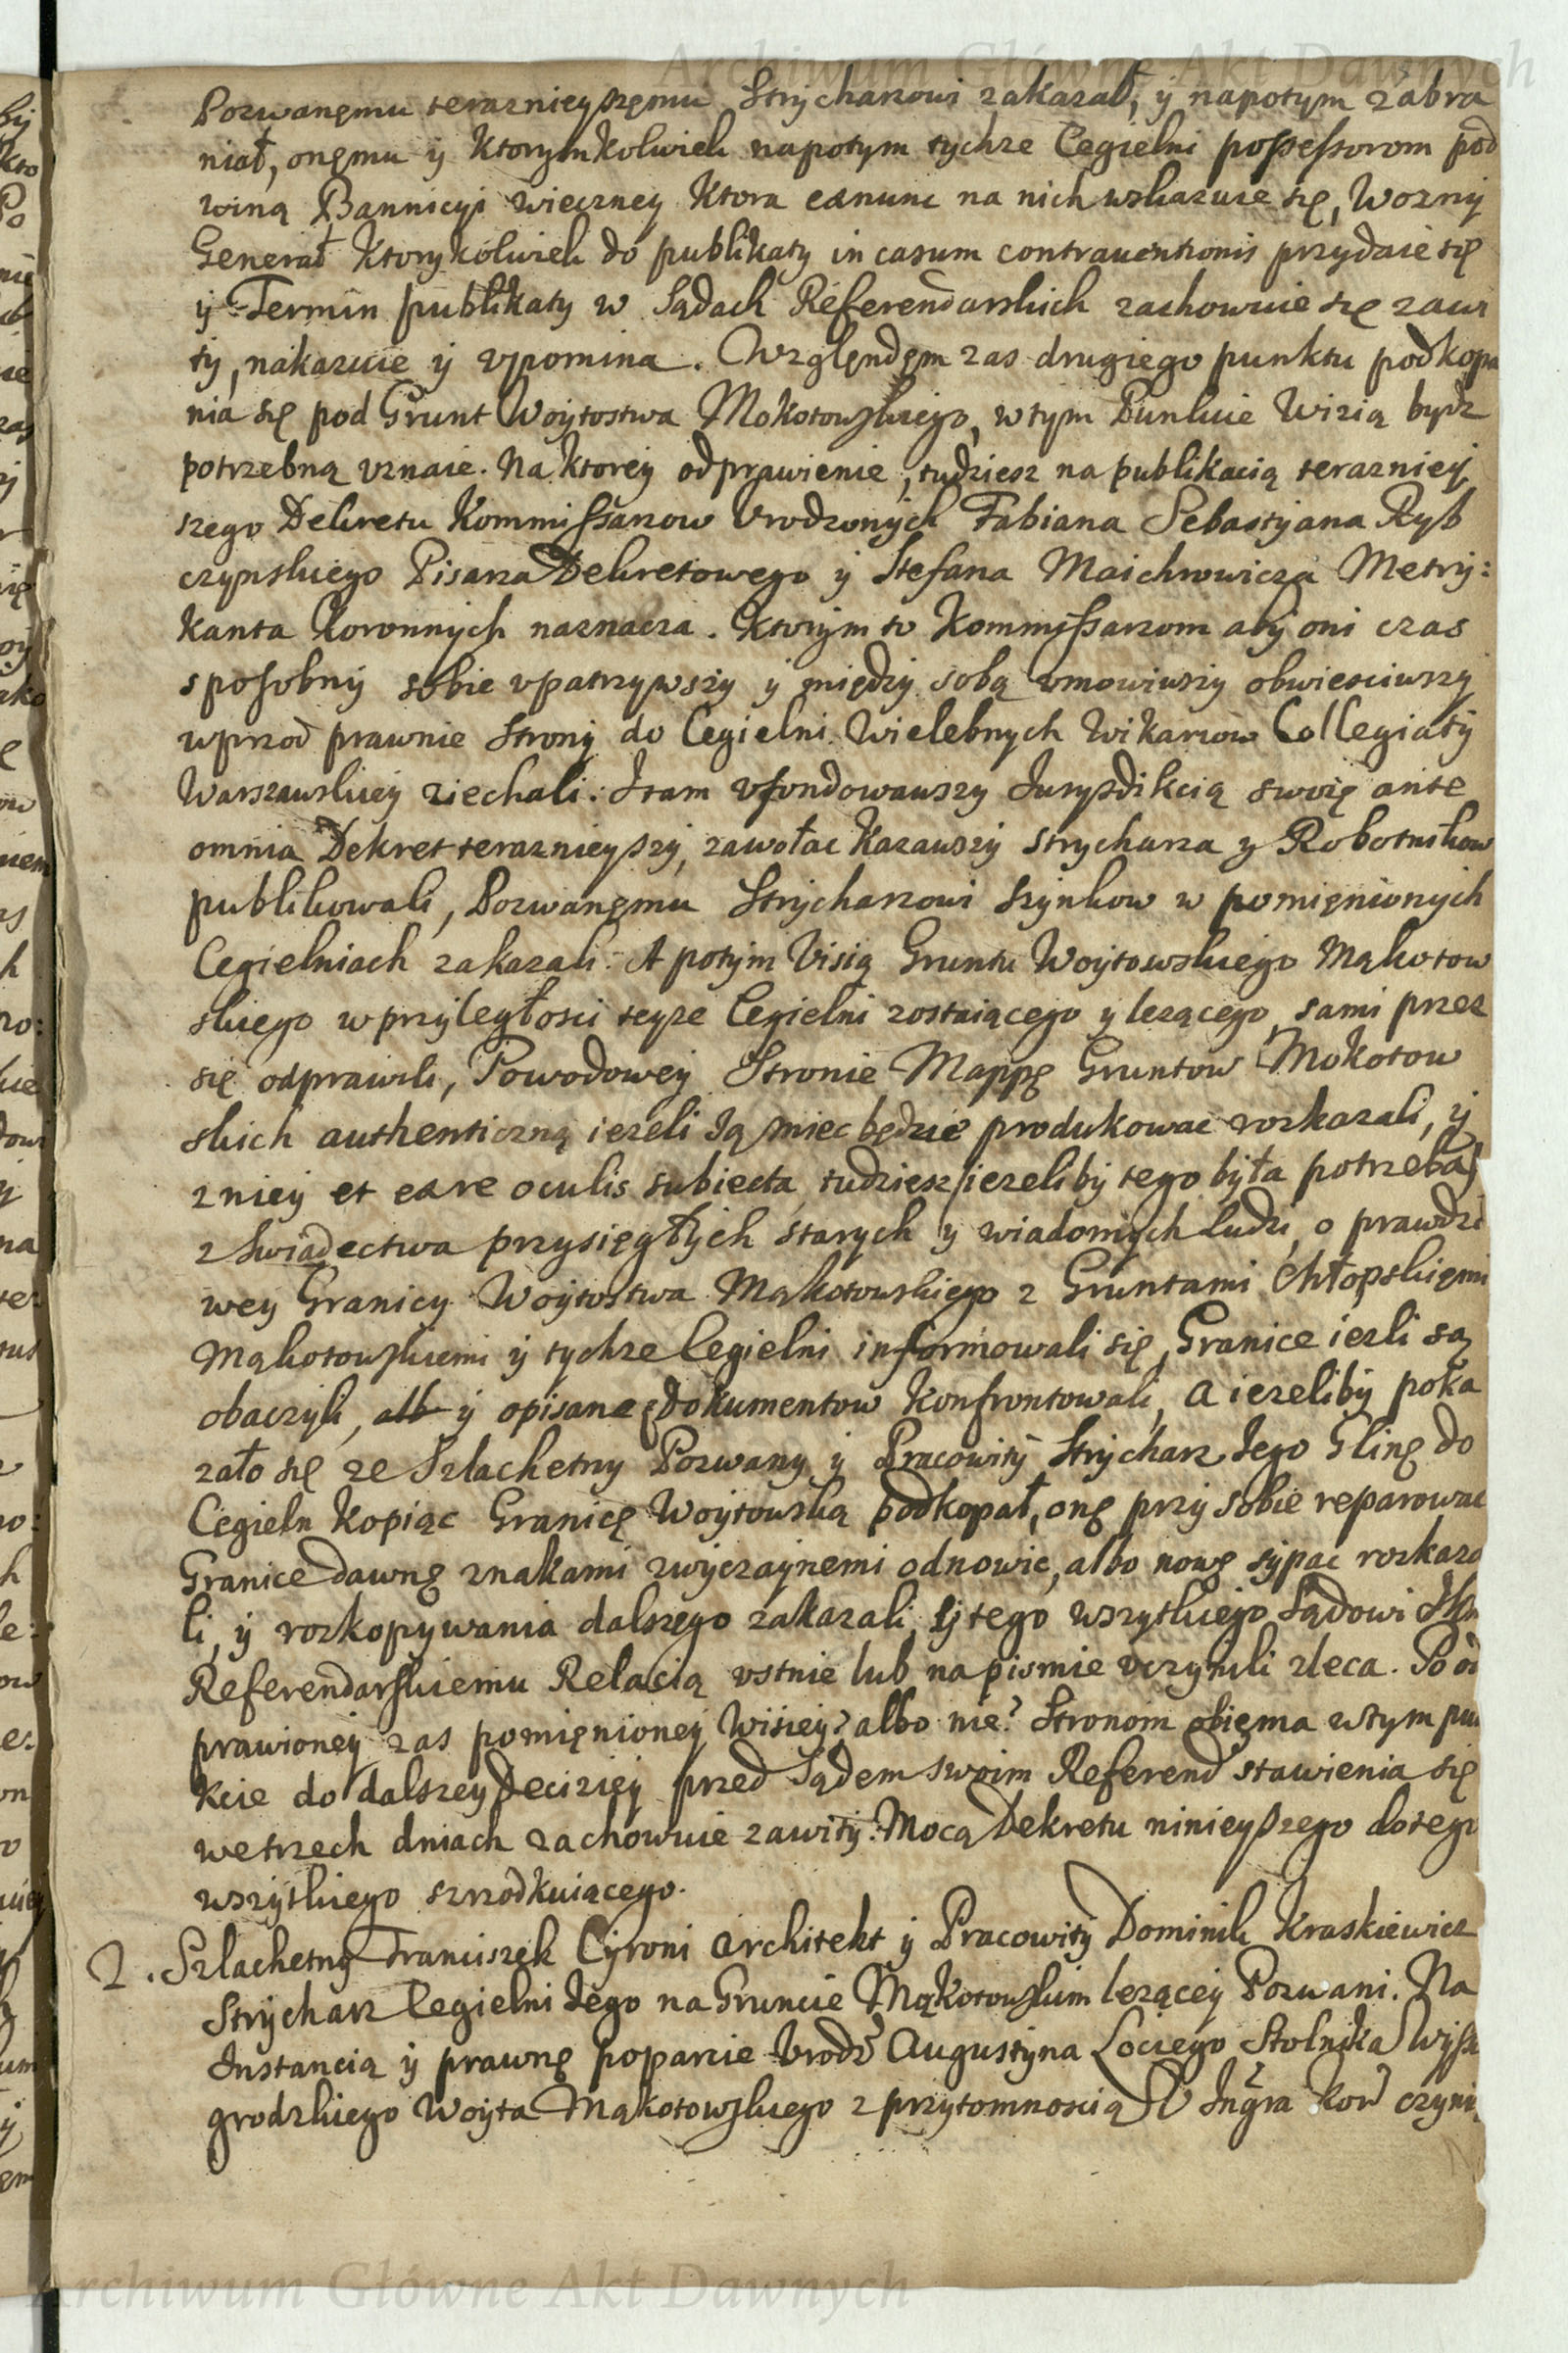 Archiwum Główne Akt Dawnych
Pozwanęmu teraznieyszęmu Strycharzowi zakazał, ÿ napotym zabra
niał, onęmu ÿ Ktorymkolwiek napotym tychze Cegielni possessorom pod
winą Bannicyi wieczney Ktora exnunc na nich wskazuie się, Wozny
Generał Ktorykolwiek do publikaty in casum contrauentionis przydaie się
ÿ Termin publikaty w Sądach Referendarskich zachowuie się zawi
ty, nakazuie ÿ vpomina. Względęm zas drugiego punktu podkopa
nia się pod Grunt Woytostwa Mokotowskiego, wtym Punkcie Wizią bydz
potrzebną vznaie. Na ktorey odprawienie, tudziesz na publikacią teraznieÿ
szego Dekretu Kommissarzow Vrodzonych Fabiana Sebastyana Ryb
czynskiego Pisarza Dekretowego ÿ Stefana Maichrowicza Metry:
kanta Koronnych naznacza. Ktorym to Kommissarzom aby oni czas
sposobny sobie vpatrzywszy ÿ między sobą vmowiwszy obwiesciwszy
wprzod prawnie Strony do Cegielni Wielebnych Wikariow Collegiaty
Warszawskiey ziechali. Itam vfondowawszy Jurysdikcią swoię ante
omnia Dekret teraznieyszy, zawołac Kazawszy strycharza y Robotnikow
publikowali, Pozwanęmu Strycharzowi szynkow w pomięnionych
Cegielniach zakazali. A potym Visią Gruntu Woytowskiego Mąkotow
skiego w przyległosci teyze Cegielni zostaiącego y lezącego, sami przez
się odprawili, Powodowey Stronie Mappę Gruntow Mokotow
skich authenticzną iezeli Ją miec będzie produkowac rozkazali, ÿ
zniey et ex re oculis subiecta, tudziesz (iezeliby tego była potrzeba)
z swiadectwa przysięgłych starych y wiadomych ludzi, o prawdzi
wey Granicy Woytostwa Mąkotowskiego z Gruntami Chłopskięmi
Mąkotowskiemi ÿ tychze Cegielni informowali się, Granice iezli są
obaczyli, alb ÿ opisanę Dokumentow Konfrontowali, a iezeliby poka
zało się ze Szlachetny Pozwany ÿ Pracowity Strycharz Jego Glinę do
Cegieln Kopiąc Granicę Woytowską podkopał, onę przy sobie reparowac
Granice dawnę znakami zwyczaynemi odnowic, albo nowę sypac rozkaza
li, ÿ rozkopywania dalszego zakazali, ÿ tego wszytkiego Sądowi
Referendarskiemu Relacią vstnie lub na pismie vczynili zleca. Po od
prawioney zas pomięnioney Wisiey? albo nie? Stronom obięma wtym pun
kcie do dalszey Deciziey przed Sądem swoim Referend stawienia się
wetrzech dniach zachowuie zawity. Mocą Dekretu ninieyszego dotego
wszytkiego szrzodkuiącego.
2. Szlachetny Franciszek Cyroni Architekt ÿ Pracowity Dominik Kraskiewicz
Strycharz Cegielni Jego na Gruncie Mąkotowskim lezącey Pozwani. Na
Instancią ÿ prawnę poparcie Vrodz Augustyna Lociego Stolnika Wysz
grodzkiego Woyta Mąkotowskiego z przytomnoscią Jnstigatora Kor czyni
Archiwum Główne Akt Dawnych